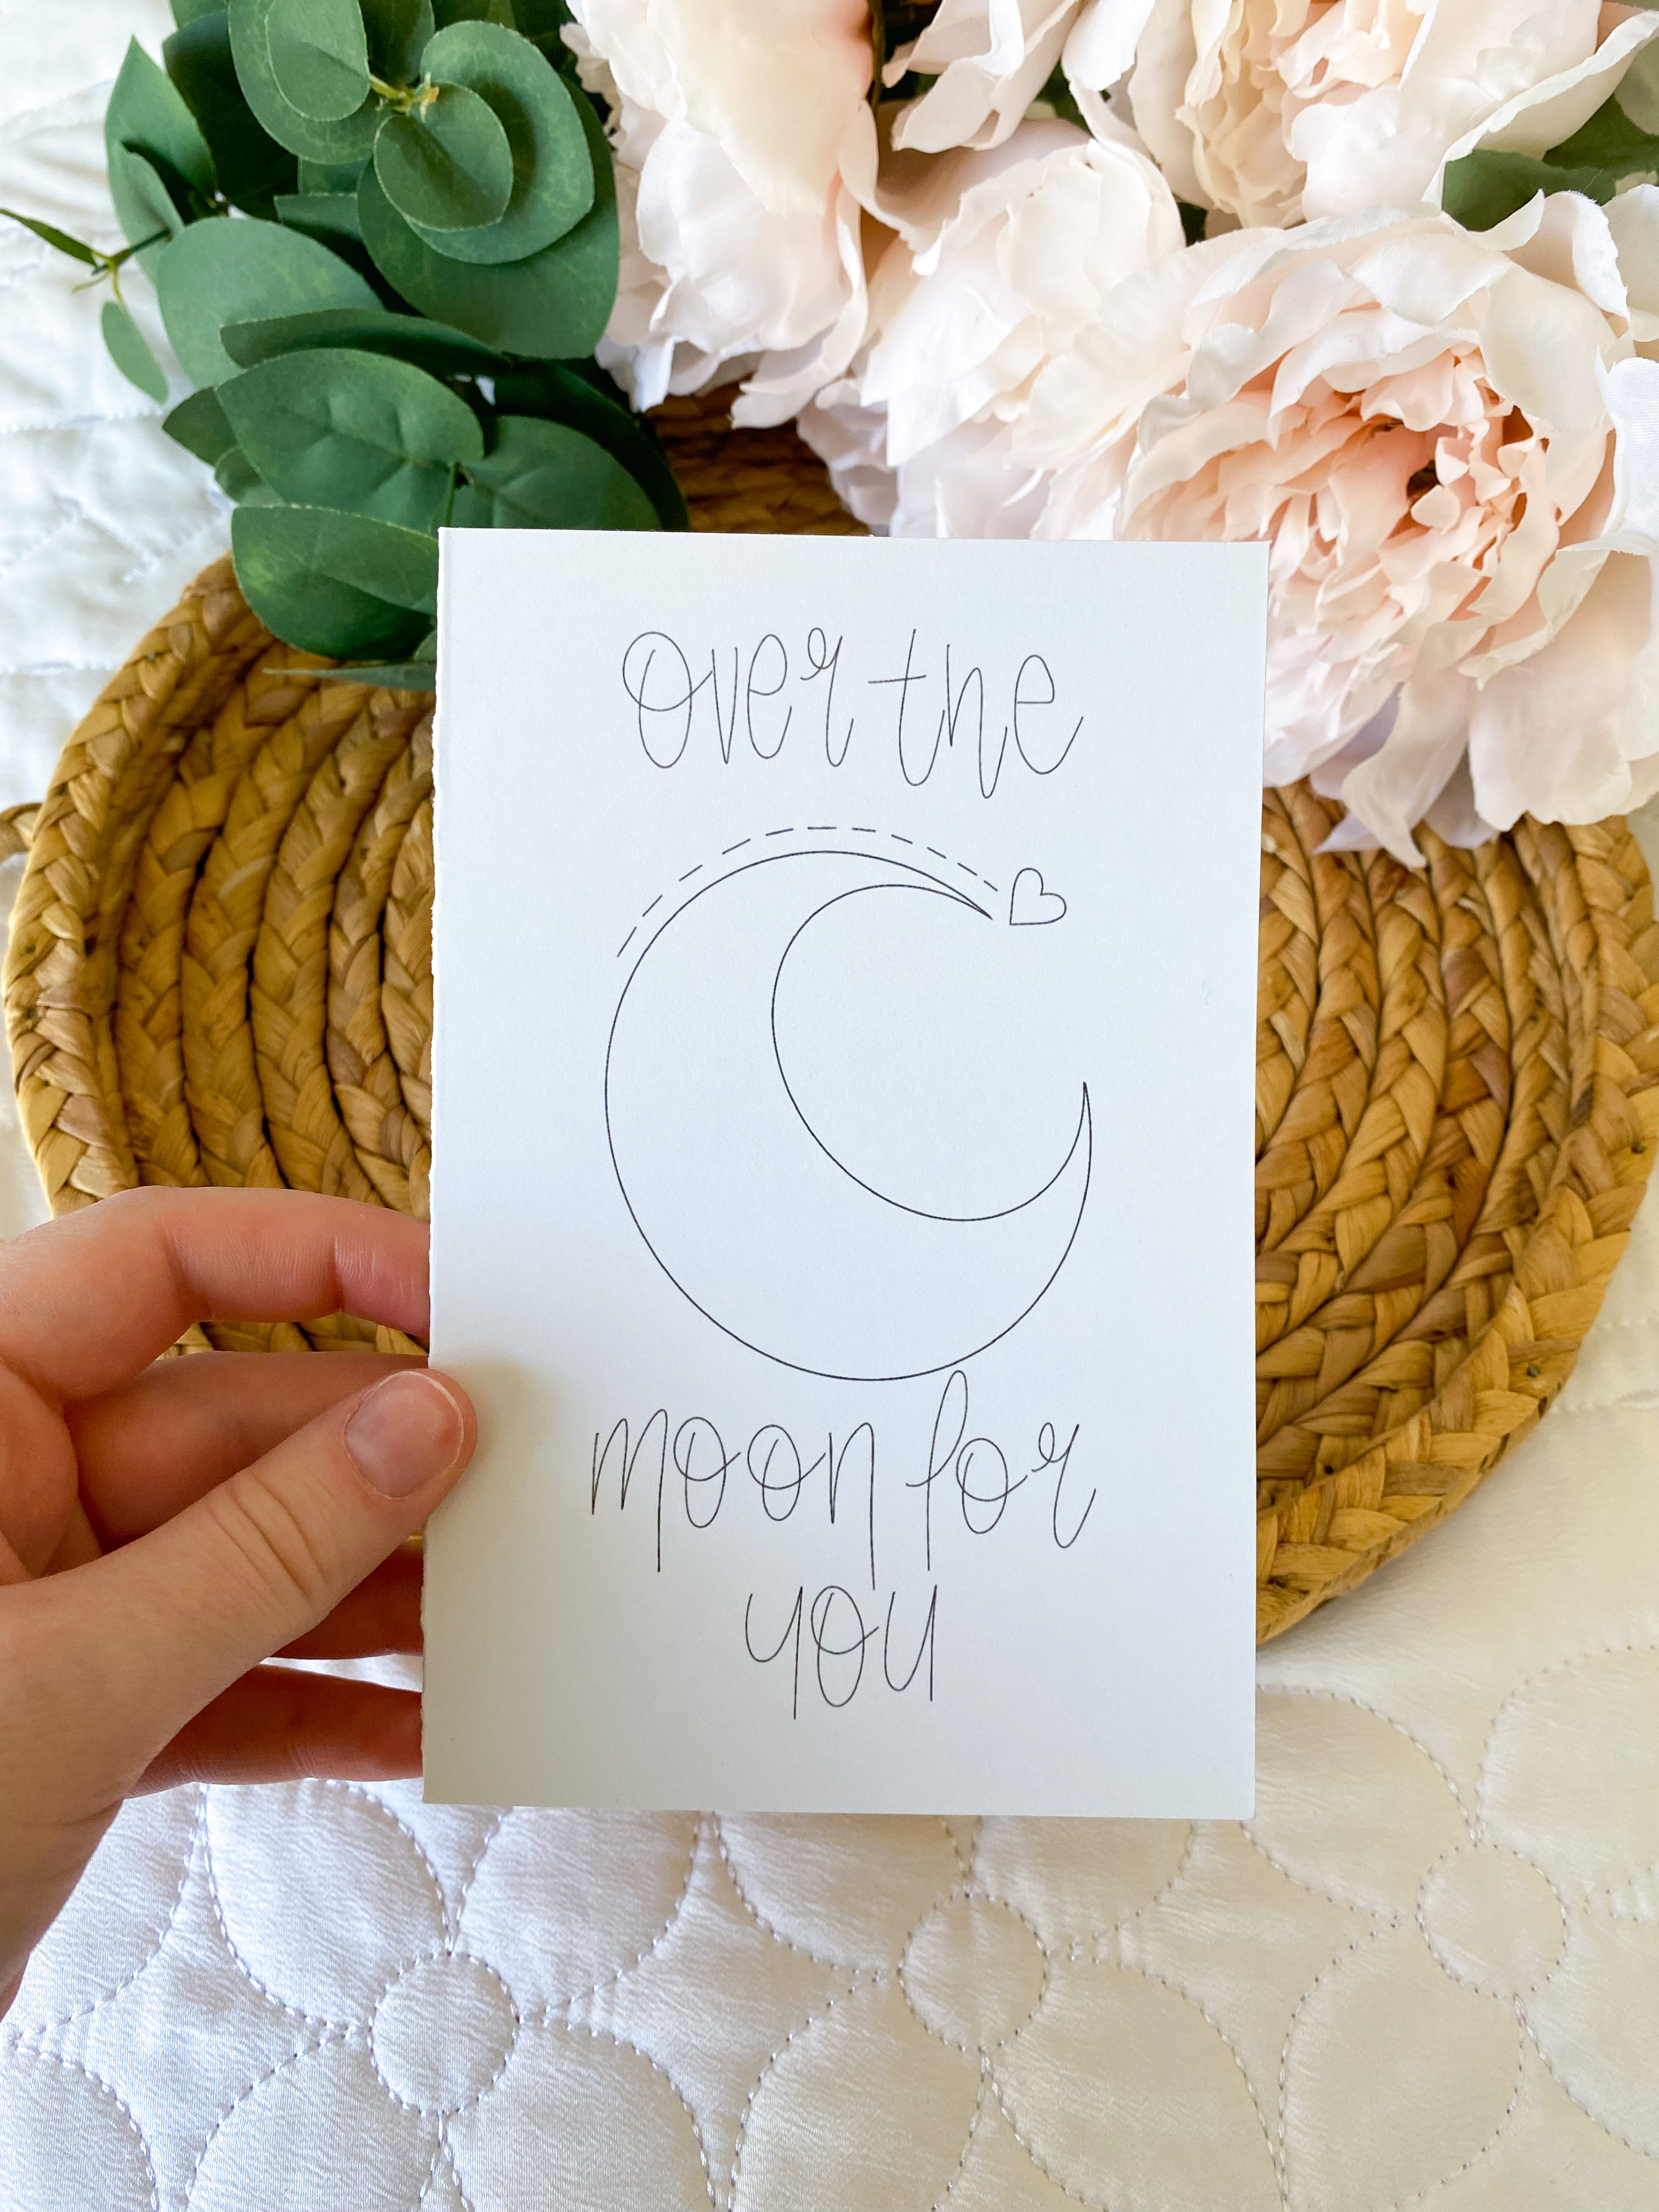 over the
moon for
you